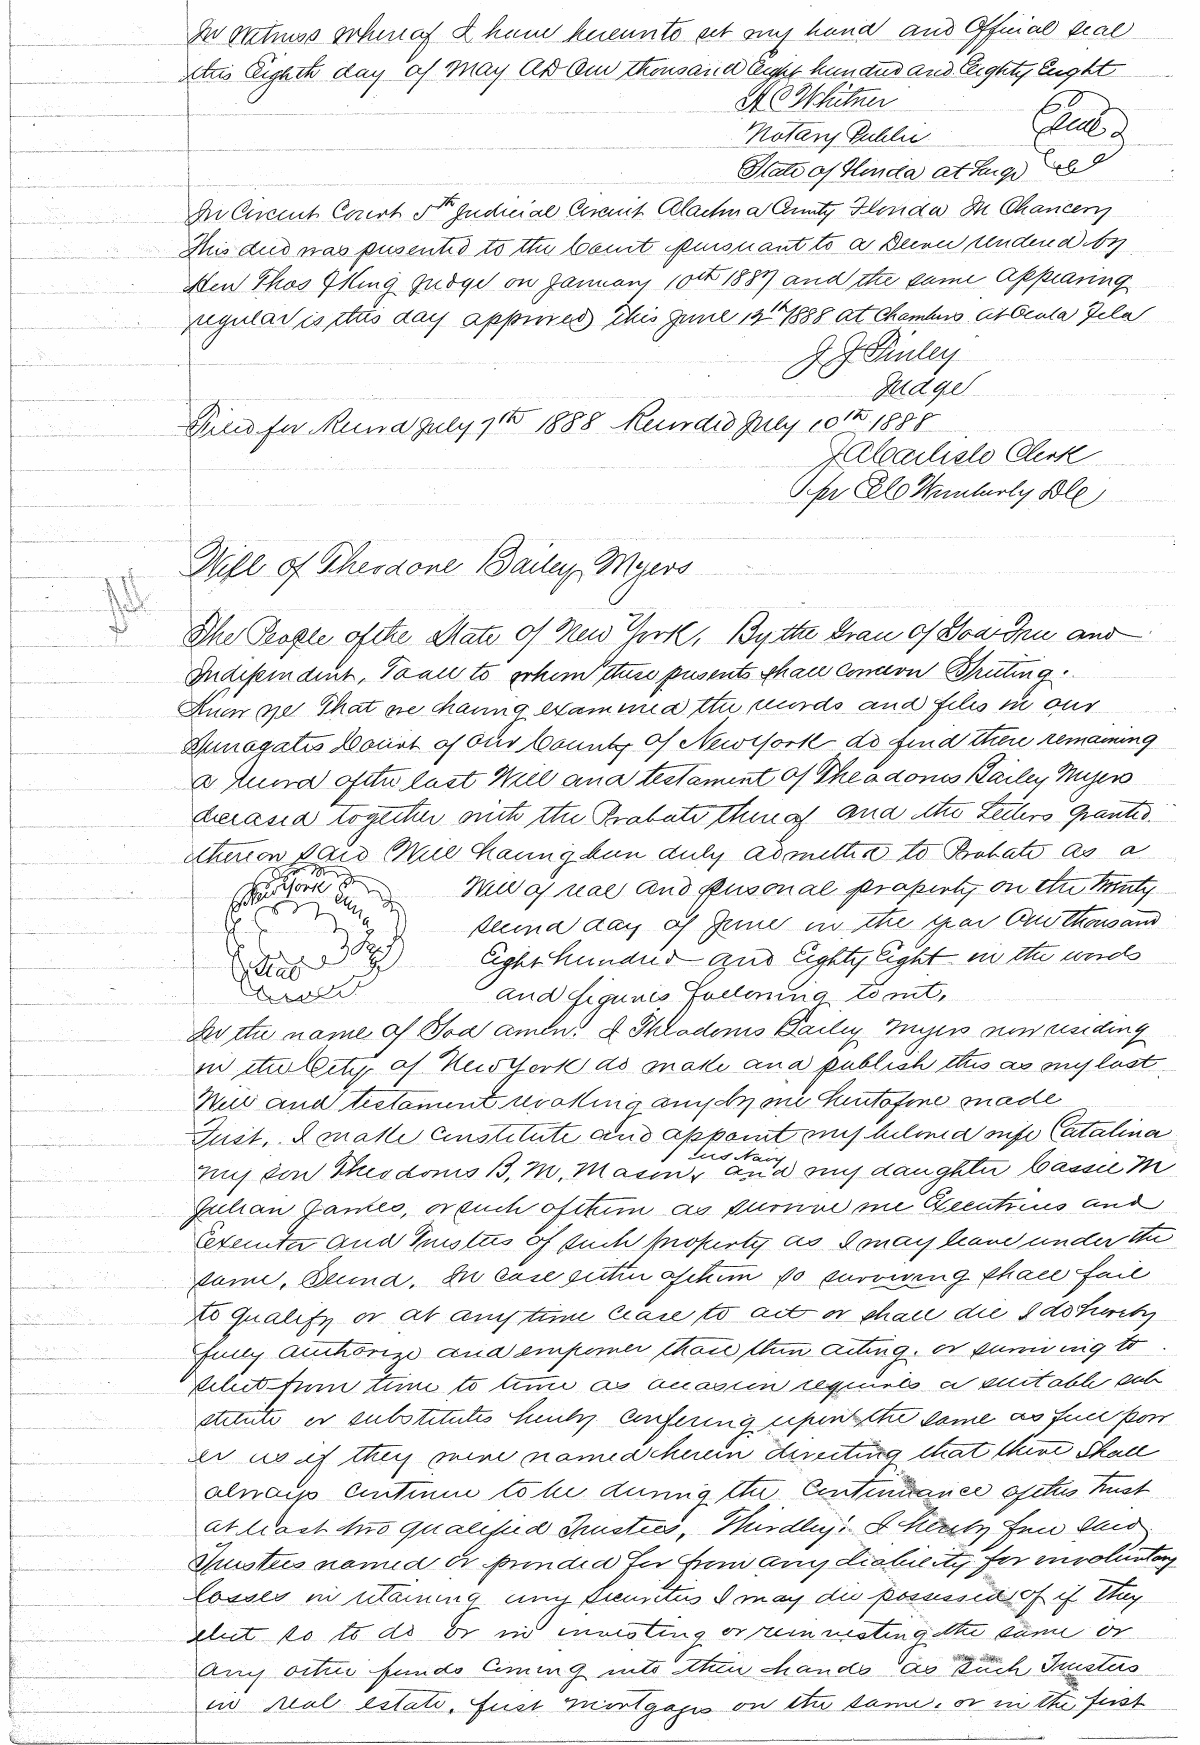 In Witness Whereof I have hereunto set my hand and Official seal
this Eighth day of May AD One thousand Eight hundred and Eighty Eight
A C Whitner
Notary Public
State of Florida at Large
In Circuit Court 5th Judicial Circuit Alachua County Florida In Chancery
This deed was presented to the Court pursuant to a Decree rendered by
Hon Thos F King Judge on January 10th 1887 and the same appearing
regular is this day approved This June 12th 1888 at Chambers at Ocala Fla
J J Finley
Judge
Filed for Record July 9th 1888 Recorded July 10th 1888
J A Carlisle Clerk
per Wimberly D C
Will of Theodore Bailey Myers
The People of the State of New York, By the Grace of God Free and
Independent, To all to whom these presents shall concern Greeting.
Know ye That we having examined the records and files in our
Surrogates Court of Our County of New York do find there remaining
a record of the last Will and testament of Theodorus Bailey Myers
deceased together with the Probate thereof and the Letters granted
thereon said Will having been duly admitted to Probate as a
Will of real and personal property on the twenty
second day of June in the year One thousand
Eight hundred and Eighty Eight in the words
and figures following towit,
In the name of God amen. I Theodorus Bailey Myers now residing
in the City of New York do make and publish this as my last
Will and testament revoking any by me heretofore made
First, I make constitute and appoint my beloved wife Catalina
my son Theodorus B. M. Mason, U S Navy and my daughter Cassie M
Julian James, or such of them as survive me Executrices and
Executor and Trustees of such property as I may leave under the
same, Second. In case either of them so surviving shall fail
to qualify or at any time cease to act or shall die I do hereby
fully authorize and empower those then acting, or surviving to
select from time to time as occasion requires a suitable sub
stitute or substitutes hereby confering upon the same as full pow
er as if they were named herein directing that there shall
always continue to be during the Continuance of this trust
at least two qualified Trustees, Thirdley: I hereby free said
Trustees named or provided for from any liability for involuntary
losses in retaining any Securities I may die possessed of if they
elect so to do or in investing or reinvesting the same or
any other funds Coming into their hands as such Trustees
in real estate, first mortgages on the same, or in the first